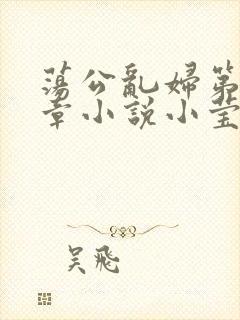 蕩公亂婦第
章小說小莹
吴飛